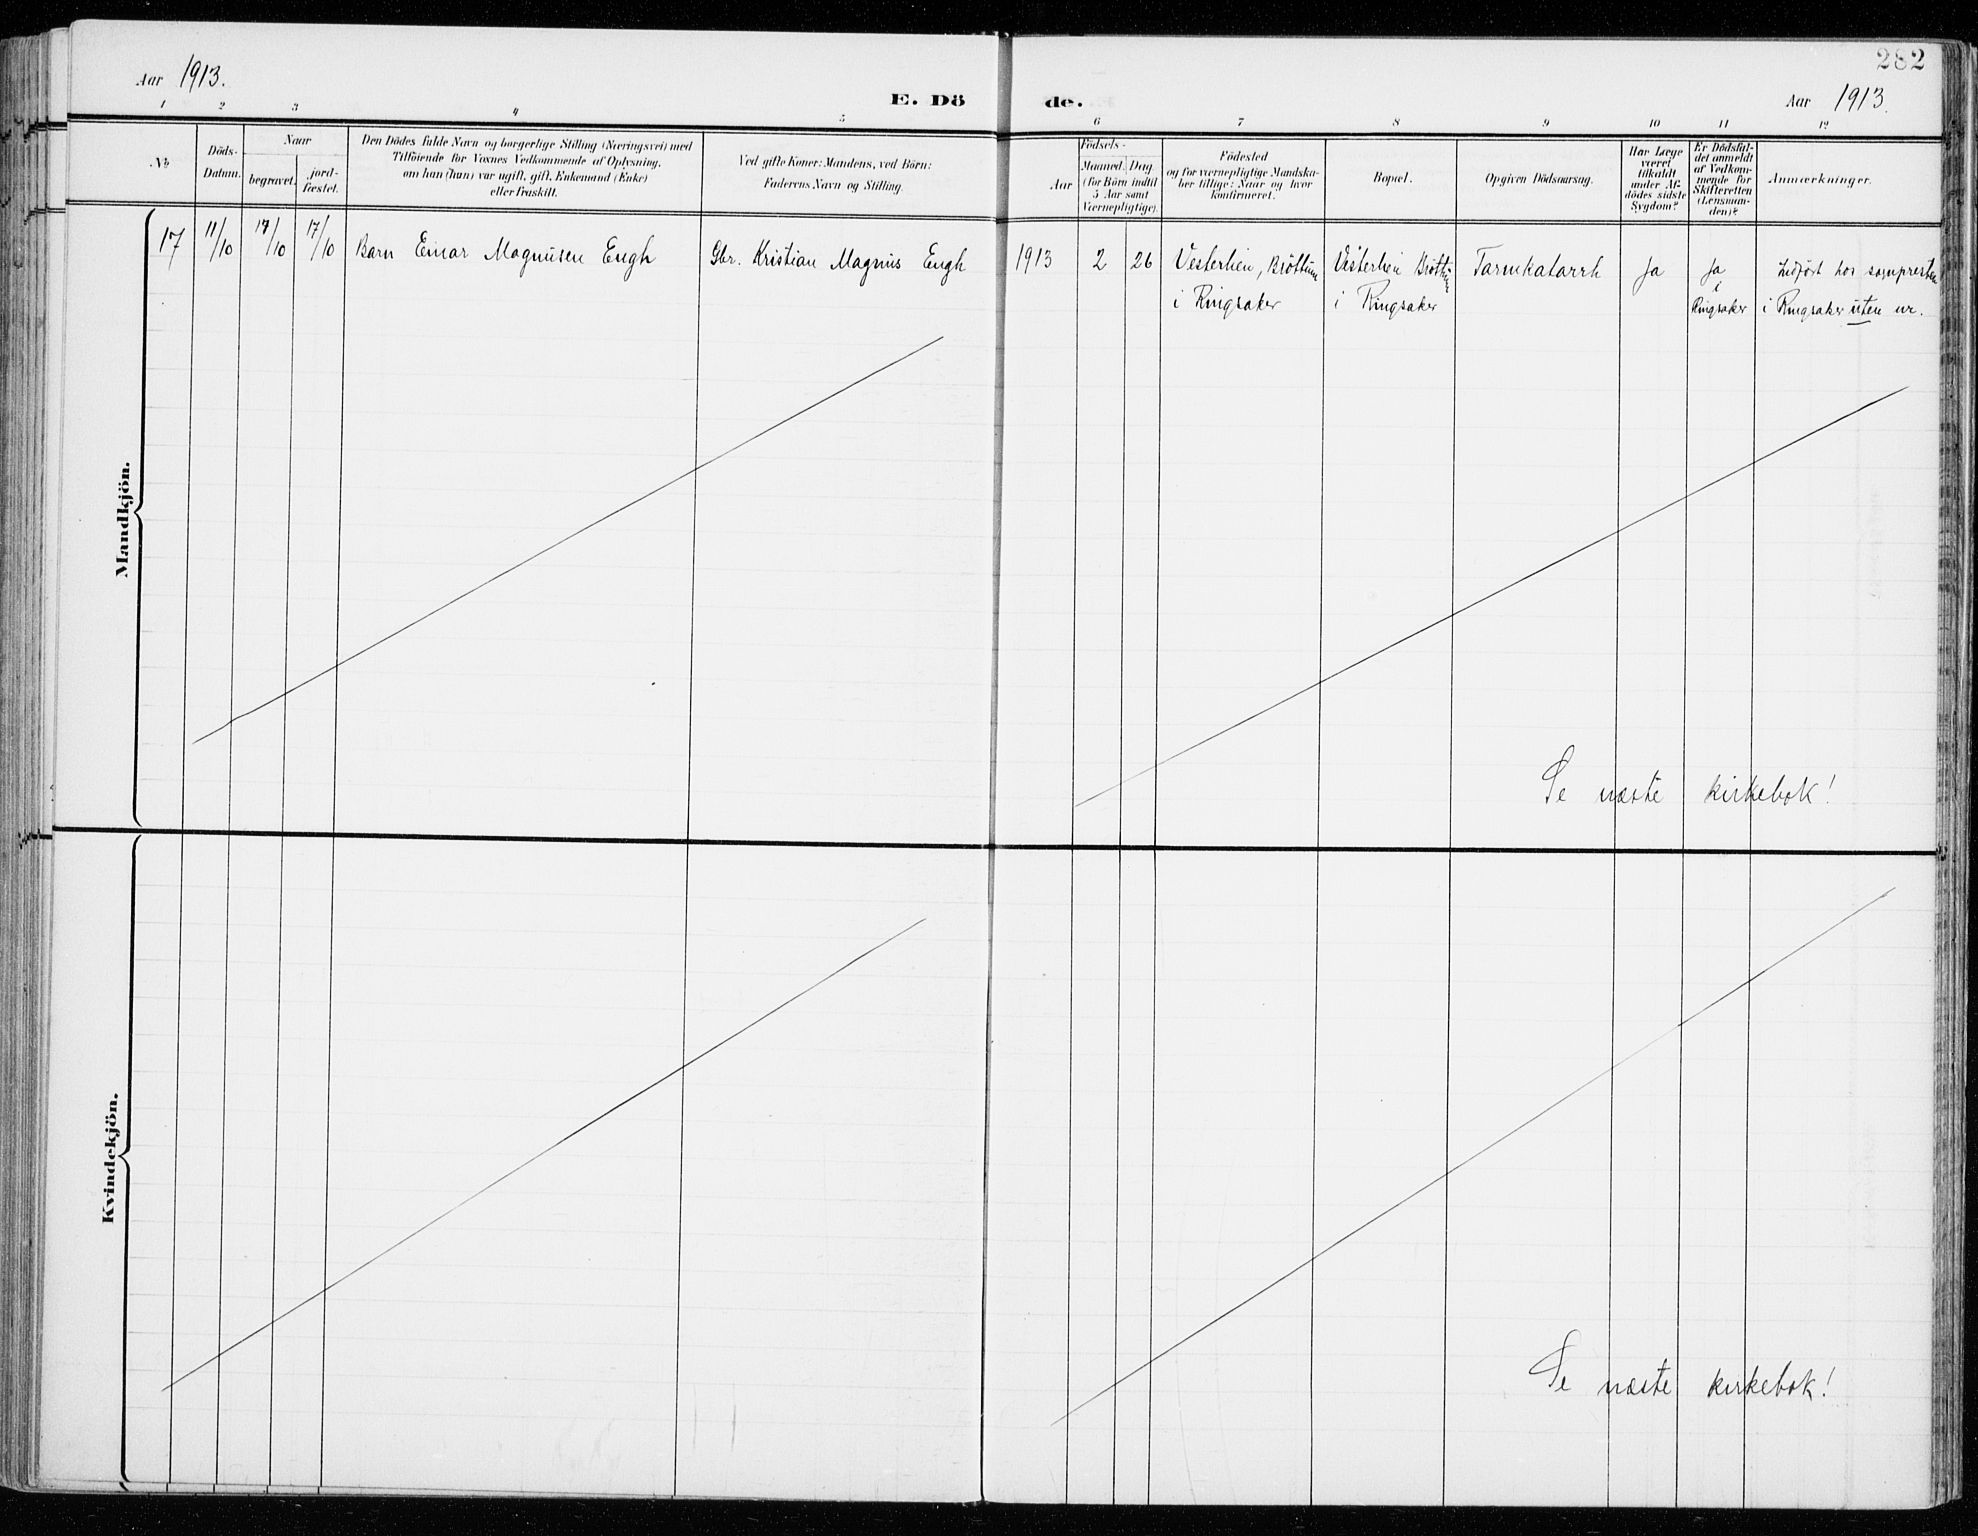 282
Aar 1913.
E. Dö de.
Aar 1913.
1 2 3 4 5 6 7 8 9 10 11 12
No
Döds-
Datum.
Naar
begravet.
jord-
fæstet.
Den Dödes fulde Navn og borgerlige Stilling (Næringsvei) med
Tilföiende for Voxnes Vedkommende af Oplysning,
om han (hun) var ugift, gift, Enkemand (Enke)
eller fraskilt.
Ved gifte Koner: Mandens, ved Börn:
Faderens Navn og Stilling.
Födsels-
Aar
Maaned.
Dag.
(for Börn indtil
5 Aar samt
Værnepligtige).
Födested
og for værnepligtige Mandska-
ber tillige: Naar og hvor
konfirmeret.
Bopæl.
Opgiven Dödsaarsag.
Har Læge
været
tilkaldt
under Af-
dödes sidste
Sygdom?
Er Dödsfal-
det anmeldt
af Vedkom-
mende for
Skifteretten
(Lensman-
den)?
Anmærkninger.
Mandkjön.
17 11/10 17/10 17/10 Barn Einar Magnusen Engh Gbr. Kristian Magnus Engh 1913 2 26 Vesterhen, Bröttum Vesterhen Bröttum Tarmkatarrh Ja Ja Indført hos sognepresten
i Ringsaker i Ringsaker i Ringsaker i Ringsaker uten nr.
Se næste kirkebok!
Kvindekjön.
Se næste kirkebok!